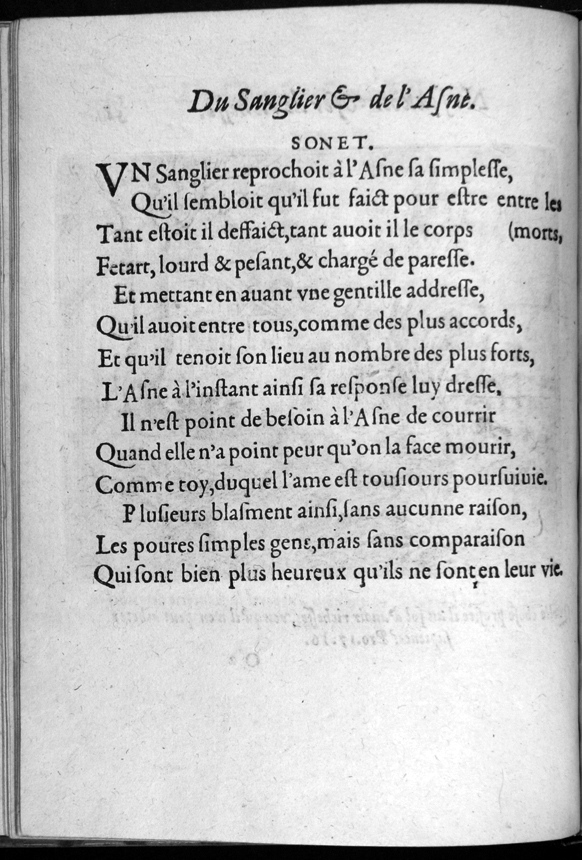 Du Sanglier & de l'Aſne.
SONET.
VN Sanglier reprochoit à l'Aſne ſa ſimpleſſe,
Qu'il ſembloit qu'il fut faict pour eſtre entre les
Tant eſtoit il deffaict,tant auoit il le corps (morts,
Fetart, lourd & peſant,& chargé de pareſſe.
Et mettant en auant vne gentille addreſſe,
Qu'il auoit entre tous,comme des plus accords,
Et qu'il tenoit ſon lieu au nombre des plus forts,
L'Aſne à l'inſtant ainſi ſa reſponſe luy dreſſe.
Il n'eſt point de beſoin à l'Aſne de courrir
Quand elle n'a point peur qu'on la face mourir,
Comme toy,duquel l'ame eſt touſiours pourſuiuie.
Pluſieurs blaſment ainſi,ſans aucunne raiſon,
Les poures ſimples gens,mais ſans comparaiſon
Qui ſont bien plus heureux qu'ils ne ſont en leur vie.